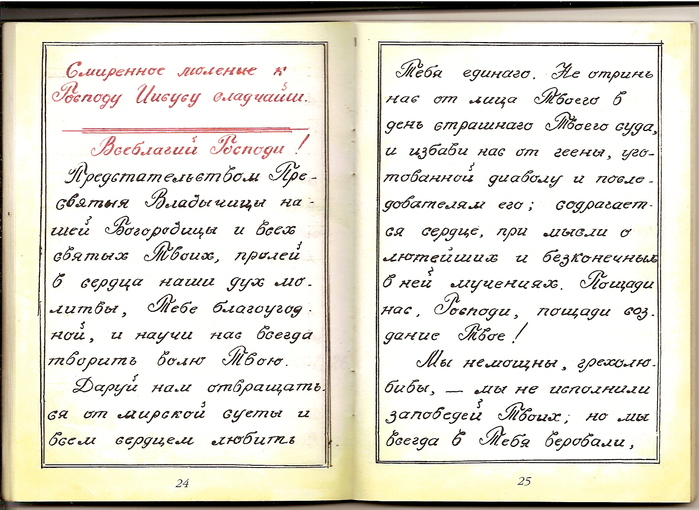 Смиренное моленые к
Господу Иисусу сладчайш.
Всеблагий Господи!
Предстательством Пре-
святыя Владычицы на-
шей Богородицы и всех
святых Твоих, пролей
в сердца наши дух мо-
литвы, Тебе благоугод-
ной, и научи нас всегда
творить волю Твою.
Даруй нам отвращать-
ся от мирской суеты и
всем сердцем любить
24
Тебя единаго. Не отринь
нас от лица Твоего в
день страшнаго Твоего суда,
и избави нас от геены, уго-
тованной диаволу и после-
дователям его; содрагает-
ся сердце, при мысли о
лютейших и безконечных
в ней мучениях. Пощади
нас, Господи, пощади соз-
дание Твое!
Мы немощны, грехолю-
бивы, — мы не исполнили
заповедей Твоих; но мы
всегда в Тебя веровали,
25